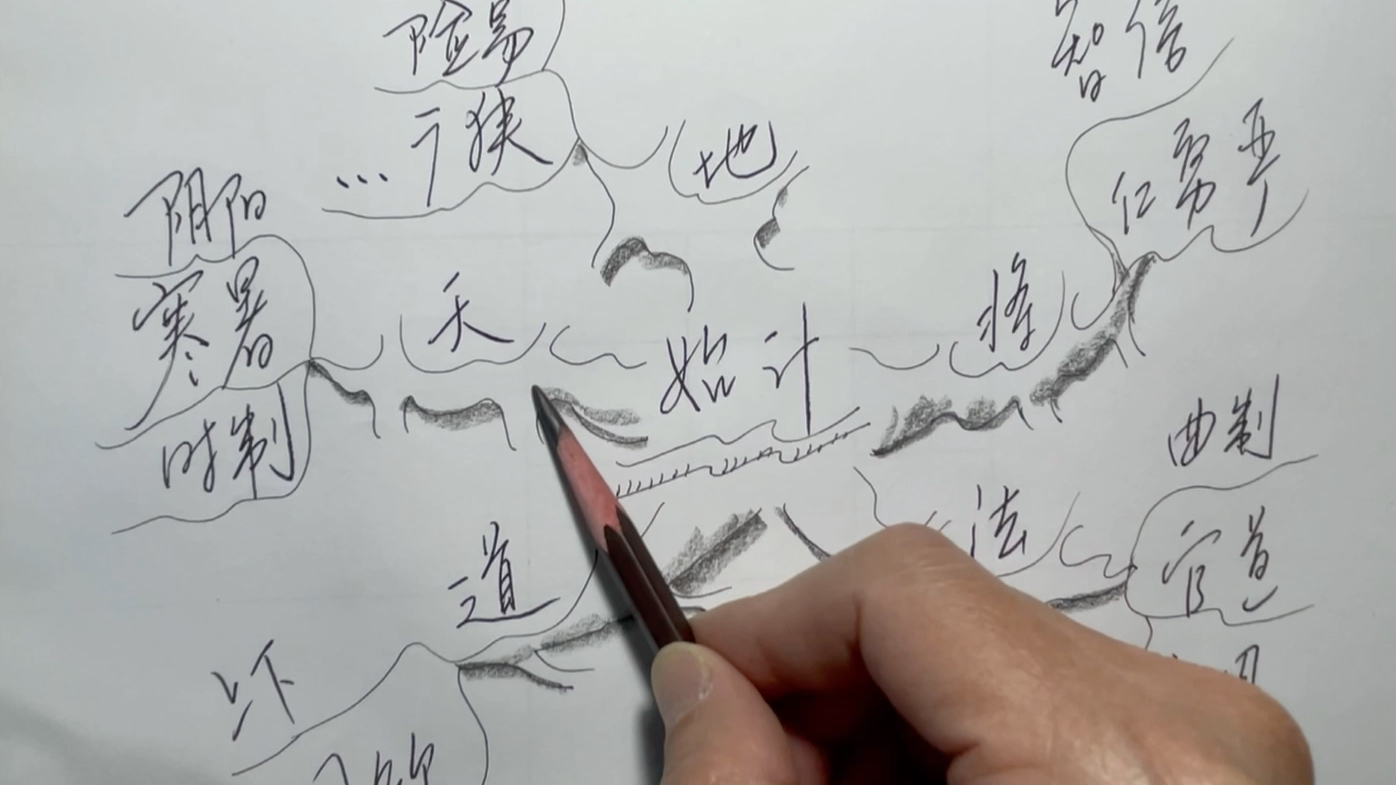 险易
…广狭
地
智信
仁勇严
阴阳
寒暑
时制
天
始计
将
曲制
官道
法
道